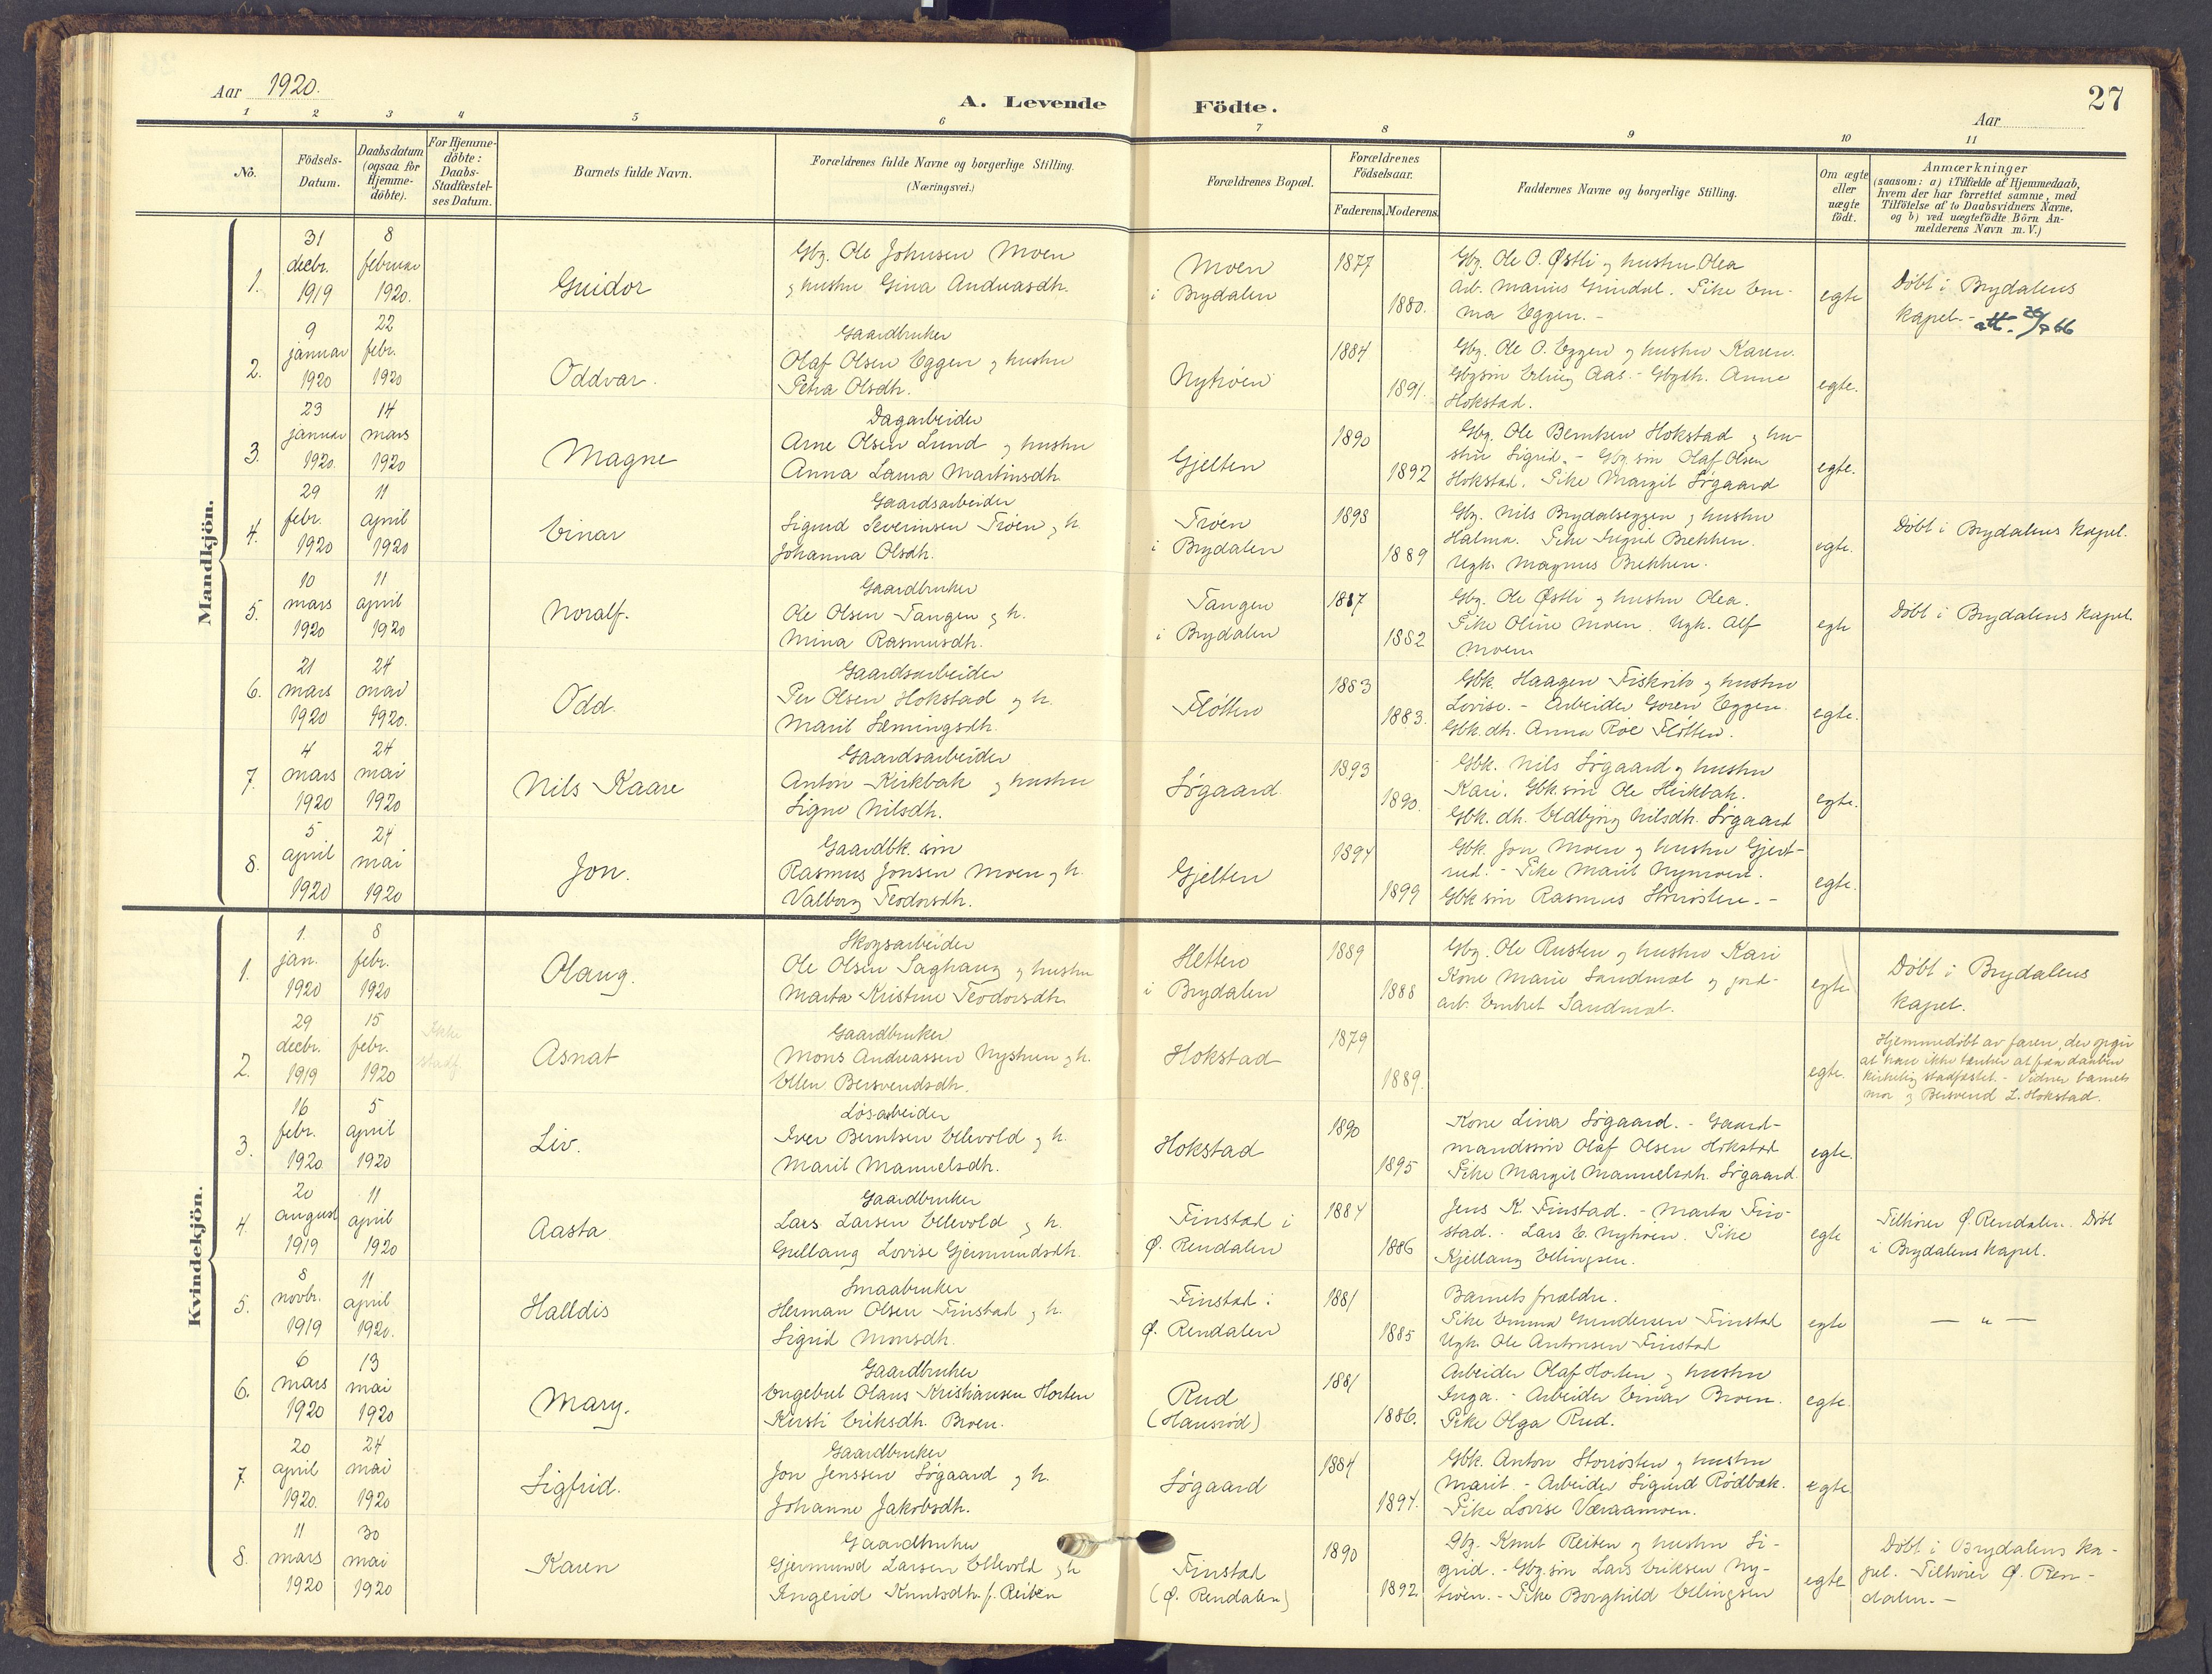 Aar 1920.
A. Levende Födte.
Aar
27
1 2 3 4 5 6 7 8 9 10 11
No.
Födsels-Datum.
Daabsdatum (ogsaa for Hjemme-döbte).
For Hjemme-döbte: Daabs-Stadfæstel-ses Datum.
Barnets fulde Navn.
Forældrenes fulde Navne og borgerlige Stilling. (Næringsvei.)
Forældrenes Bopæl.
Forældrenes Födselsaar.
Faderens. Moderens.
Faddernes Navne og borgerlige Stilling.
Om ægte eller uægte födt.
Anmærkninger
(saasom: a) i Tilfælde af Hjemmedaab,
hvem der har forrettet samme, med
Tilföielse af to Daabsvidners Navne,
og b) ved uægtefödte Börn An-
melderens Navn m. V.)
Mandkjön.
1.
31 decbr. 1919
8 februar 1920.
Guidor
Gbg. Ole Johnsen Moen
og hustru Gina Andreasdh.
Moen
i Brydalen
1877
1880.
Gbg. Ole O. Østli og hustru Olea
Arb. Marius Grindal. Pike Em-
ma Eggen. -
egte
Døbt i Brydalens
kapel. - att.
2.
9 januar 1920
22 febr. 1920
Oddvar.
Gaardbruker
Olaf Olsen Eggen og hustru
Petra Olsdh.
Nytrøen
1884
1891.
Gbg. Ole O. Eggen og hustru Karen.
Gbgsøn Erling Aas. - Gbgdh. Anne
Hokstad.
egte.
3.
23 januar 1920.
14 mars 1920
Magne
Dagarbeider
Arne Olsen Lund og hustru
Anna Laura Martinsdh.
Gjelten
1890
1892
Gbg. Ole Berntsen Hokstad og hu-
stru Sigrid. - Gbg. søn Olaf Olsen
Hokstad. Pike Margit Søgaard
egte.
4.
29 febr. 1920
11 april 1920
Einar
Gaardsarbeider
Sigurd Severinsen Trøen og h.
Johanna Olsdh.
Trøen
i Brydalen
1898
1889
Gbg. Nils Brydalseggen og hustru
Halma. Pike Ingrid Brekken.
Ugk. Magnus Brekken.
egte.
Døbt i Brydalens kapel.
5.
10 mars 1920
11 april 1920
Noralf.
Gaardbruker
Ole Olsen Tangen og h.
Mina Rasmusdh.
Tangen
i Brydalen
1887
1882
Gbg. Ole Østli og hustru Olea.
Pike Oline Moen. Ugk. Alf
Moen
egte
Døbt i Brydalens kapel.
6.
21 mars 1920
24 mai 1920.
Odd.
Gaardsarbeider
Per Olsen Hokstad og h.
Marit Hemingsdh.
Fløtten
1883
1883.
Gbk. Haagen Fiskvik og hustru
Lovise. - Arbeider Goren Eggen.
Gbk. dh. Anna Roe Fløtten.
egte.
7.
4 mars 1920
24 mai 1920
Nils Kaare
Gaardsarbeider
Anton Kirkbak og hustru
Signe Nilsdh.
Søgaard
1893
1890.
Gbk. Nils Søgaard og hustru
Kari. Gbk søn Ole Kirkbak.
Gbk. dh. Eldbjørg Nilsdh. Søgaard
egte.
8.
5 april 1920
24 mai 1920
Jon.
Gaardbk. søn
Rasmus Jonsen Moen og h.
Valborg Teodorsdh.
Gjelten
1894
1899
Gbk. Jon Moen og hustru Gjert-
rud. - Pike Marit Nymoen.
Gbk søn Rasmus Storrøsten. -
egte.
Kvindekjön.
1.
1. jan. 1920
8 febr. 1920
Olaug.
Skogsarbeider
Ole Olsen Saghaug og hustru
Marta Kristine Teodorsdh.
Hetten
i Brydalen
1889
1888
Gbg. Ole Rusten og hustru Kari
Kone Marie Sandmæl og jord-
arb. Embret Sandmæl.
egte
Døbt i Brydalens
kapel.
2.
29 decbr. 1919
15 febr. 1920
Ikke stadf.
Asnat
Gaardbruker
Mons Andreassen Nystuen og h.
Ellen Bersvendsdh.
Hokstad
1879
1889.
egte.
Hjemmedøbt av faren, der opgir
at han ikke tænker at faa daaben
kirkelig stadfæstet. - Vidner barnets
mor og Bersvend L. Hokstad.
3.
16 febr. 1920
5 april 1920
Liv.
Løsarbeider
Iver Berntsen Ellevold og h.
Marit Manuelsdh.
Hokstad
1890
1895
Kone Lina Søgaard. - Gaard-
mandssøn Olaf Olsen Hokstad
Pike Margit Manuelsdh. Søgaard.
egte.
4.
20 august 1919
11 april 1920
Aasta
Gaardbruker
Lars Larsen Ellevold og h.
Gullaug Lovise Gjermundsdh.
Finstad i
Ø. Rendalen
1884
1886
Jens K. Finstad. - Marta Fin-
stad. - Lars E. Nytrøen. Pike
Kjellaug Ellingsen.
egte
Tilhører Ø. Rendalen. Døbt
i Brydalens kapel.
5.
8 novbr. 1919
11 april 1920.
Halldis
Smaabruker
Herman Olsen Finstad og h.
Sigrid Monsdh.
Finstad i
Ø. Rendalen
1881
1885
Barnets forældre.
Pike Emma Gundersen Finstad
Ugk. Ole Antonsen Finstad
egte
— „ —
6.
6 mars 1920
13 mai 1920
Mary.
Gaardbruker
Engebret Olaus Kristiansen Horten
Kersti Eriksdh. Broen.
Rud
(Hansrød)
1881
1886.
Arbeider Olaf Horten og hustru
Inga. - Arbeider Einar Broen.
Pike Olga Rud.
egte.
7.
20 april 1920.
24 mai 1920
Sigfrid.
Gaardbruker
Jon Jenssen Søgaard og h.
Johanne Jakobsdh.
Søgaard
1884
1894.
Gbk. Anton Storrøsten og hustru
Marit. - Arbeider Sigurd Rødbæk.
Pike Lovise Væraamoen.
egte
8.
11 mars 1920
30 mai 1920
Karen
Gaardbruker
Gjermund Larsen Ellevold og h
Ingerid Knutsdh. f. Reiten
Finstad
(Ø. Rendalen)
1890
1892
Gbg. Knut Reiten og hustru Si-
grid. - Gbg. søn Lars Eriksen Ny-
trøen. - Pike Borghild Ellingsen
egte
Døbt i Brydalens ka-
pel. Tilhører Ø. Ren-
dalen. -